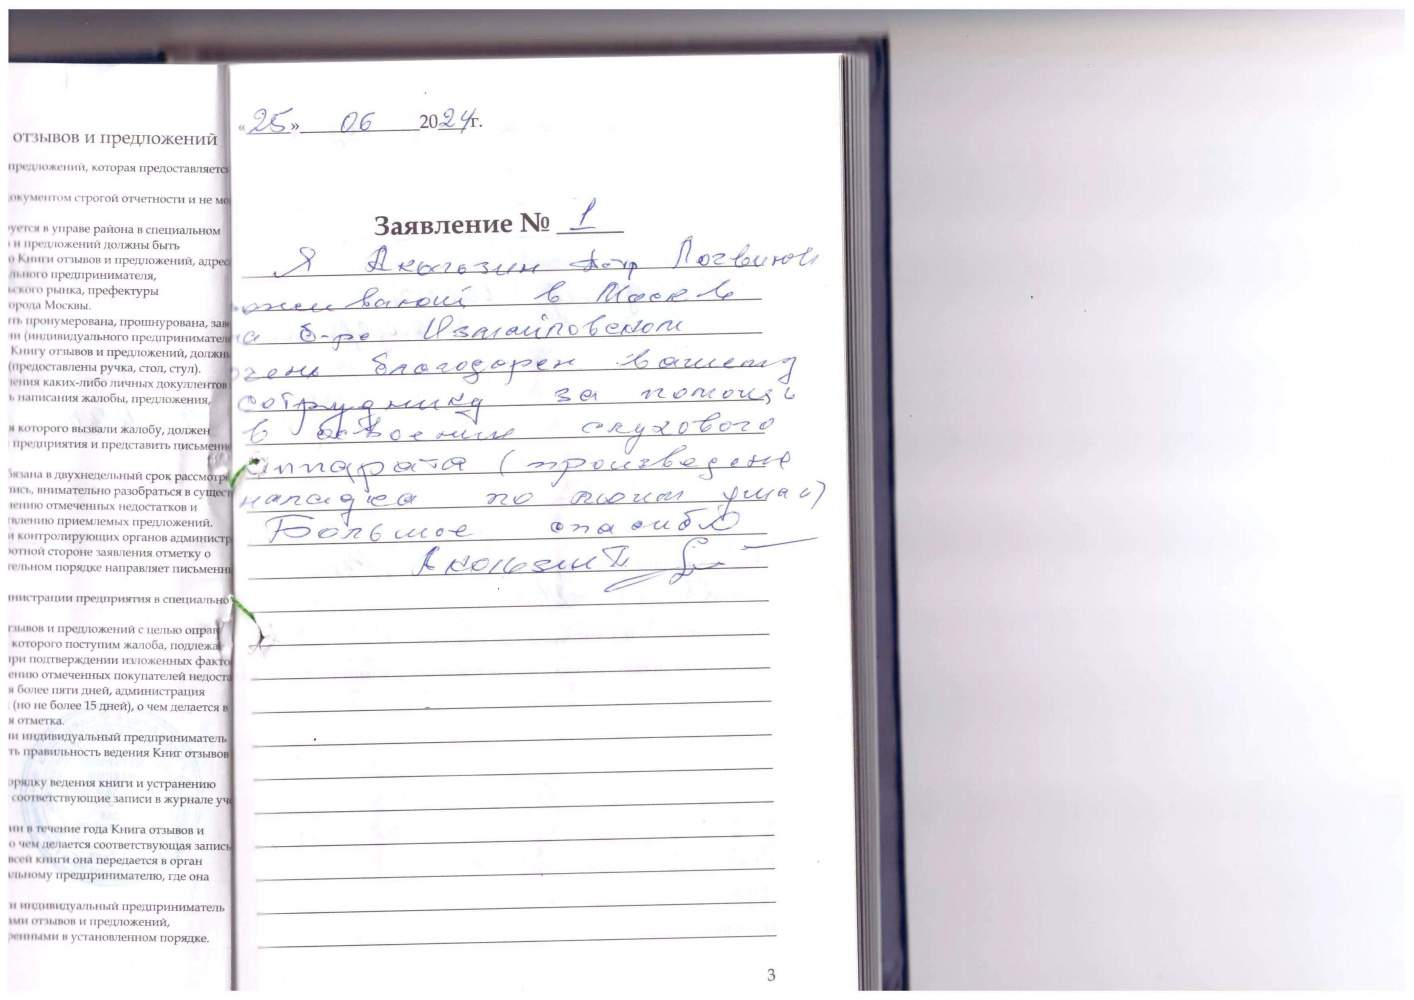 отзывов и предложений
предложений, которая предоставляетс
документом строгой отчетности и не мо
руется в управе района в специальном
и предложений должны быть
о Книги отзывов и предложений, адрес
льного предпринимателя,
ьского рынка, префектуры
орода Москвы.
ть пронумерована, прошнурована, зав
ии (индивидуального предпринимател
Книгу отзывов и предложений, должн
(предоставлены ручка, стол, стул).
ления каких-либо личных докуллентов
ь написания жалобы, предложения,
я которого вызвали жалобу, должен
предприятия и представить письменн
бязана в двухнедельный срок рассмотр
пись, внимательно разобраться в сущест
нению отмеченных недостатков и
твлению приемлемых предложений.
и контролирующих органов администр
ротной стороне заявления отметку о
тельном порядке направляет письменны
нистрации предприятия в специально
тзывов и предложений с целью оправ
которого поступим жалоба, подлежа
при подтверждении изложенных факто
ению отмеченных покупателей недоста
я более пяти дней, администрация
(но не более 15 дней), о чем делается в
я отметка.
ии индивидуальный предприниматель
ть правильность ведения Книг отзывов
орядку ведения книги и устранению
соответствующие записи в журнале уч
ии в течение года Книга отзывов и
о чем делается соответствующая запись
всей книги она передается в орган
льному предпринимателю, где она
и индивидуальный предприниматель
ами отзывов и предложений,
ренными в установленном порядке.
«25» 06 2024г.
Заявление № 1
Я Акользин Петр Логвинов
оживающий в Москве
на б-ре Измайловском
очень благодарен вашему
сотруднику за помощь
в освоении слухового
аппарата (произведена
наладка по моим ушам)
Большое спасибо
Акользин П
3